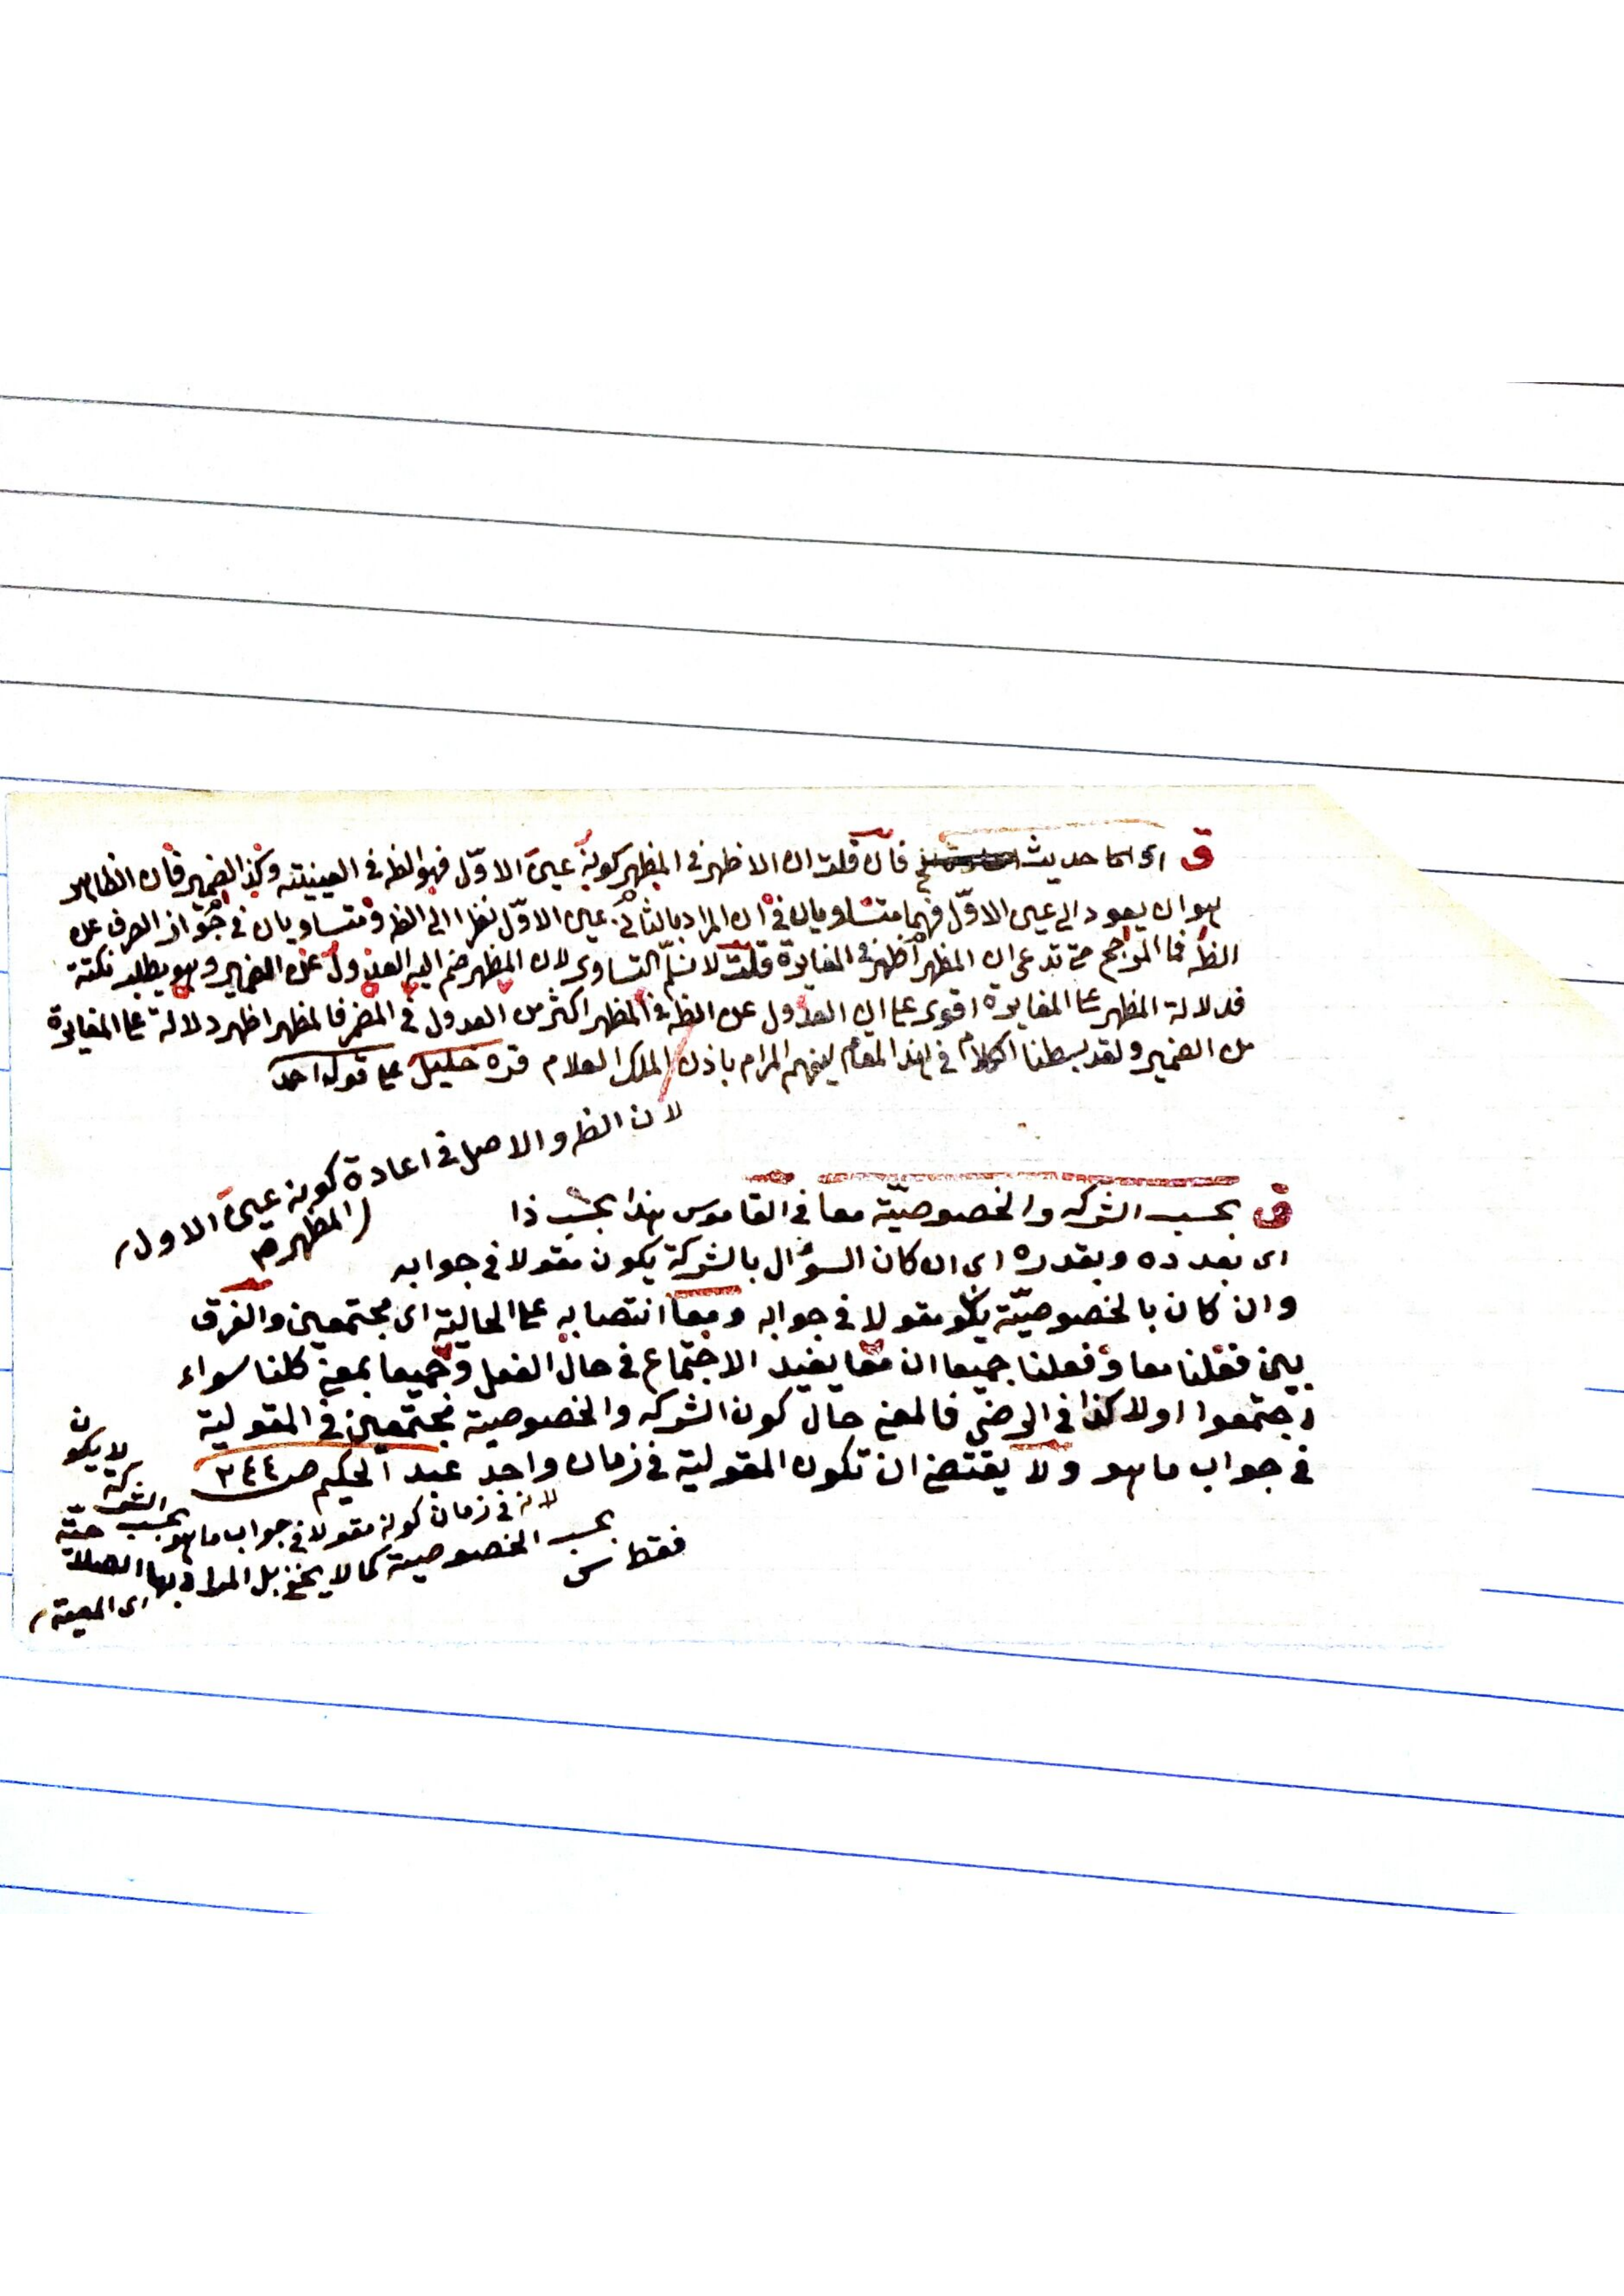 ق اى اكا حديث فان قلت ان الاظهر في المظهر كونه عين الاوّل فهو الظ في العينيته وكذا الضمير فان الظاهر
هو ان يعود الى عين الاوّل فهما متساويان في ان المراد بالثانى عين الاوّل نظرا الى الظ ومتساويان في جواز الصرف عن
الظ فما المرجح حتى تدعى ان المظهر اظهر في المغايرة قلت لا نسلّم التساوى لان المظهر ضم اليه العدول عن الضمير وهو يطلب نكتة
فدلالة المظهر على المغايرة اقوى على ان العدول عن الظ في المظهر اكثر من العدول في المضمر فالمظهر اظهر دلالة على المغايرة
من الضمير ولقد بسطنا الكلام في هذا المقام ليفهم المرام باذن الملك العلام قره خليل على قول احمد
لان الظ والاصل في اعادة
المظهر كونه عين الاول
ق بحسب الشركه والخصوصيّة معا في القاموس هذا بحسب ذا
اى بعدده وبقدره اى ان كان السؤال بالشركة يكون مقولا في جوابه
وان كان بالخصوصيّة يكو مقولا في جوابه ومعا انتصابه على الحالية اى مجتمعين والفرق
بين فعلنا معا وفعلنا جميعا ان معا يفيد الاجتماع في حال الفعل وجميعا بمعنى كلنا سواء
اجتمعوا اولا كذا في الرضى فالمعنى حال كون الشركه والخصوصية مجتمعين في المقولية
في جواب ما هو ولا يقتضى ان تكون المقولية في زمان واحد عبد الحكيم ص ٢٤٤
لانه في زمان كونه مقولا في جواب ما هو بحسب الشركة لا يكون
بحسب الخصوصية كما لا يخفى بل المراد بها
اى المعية
فقط